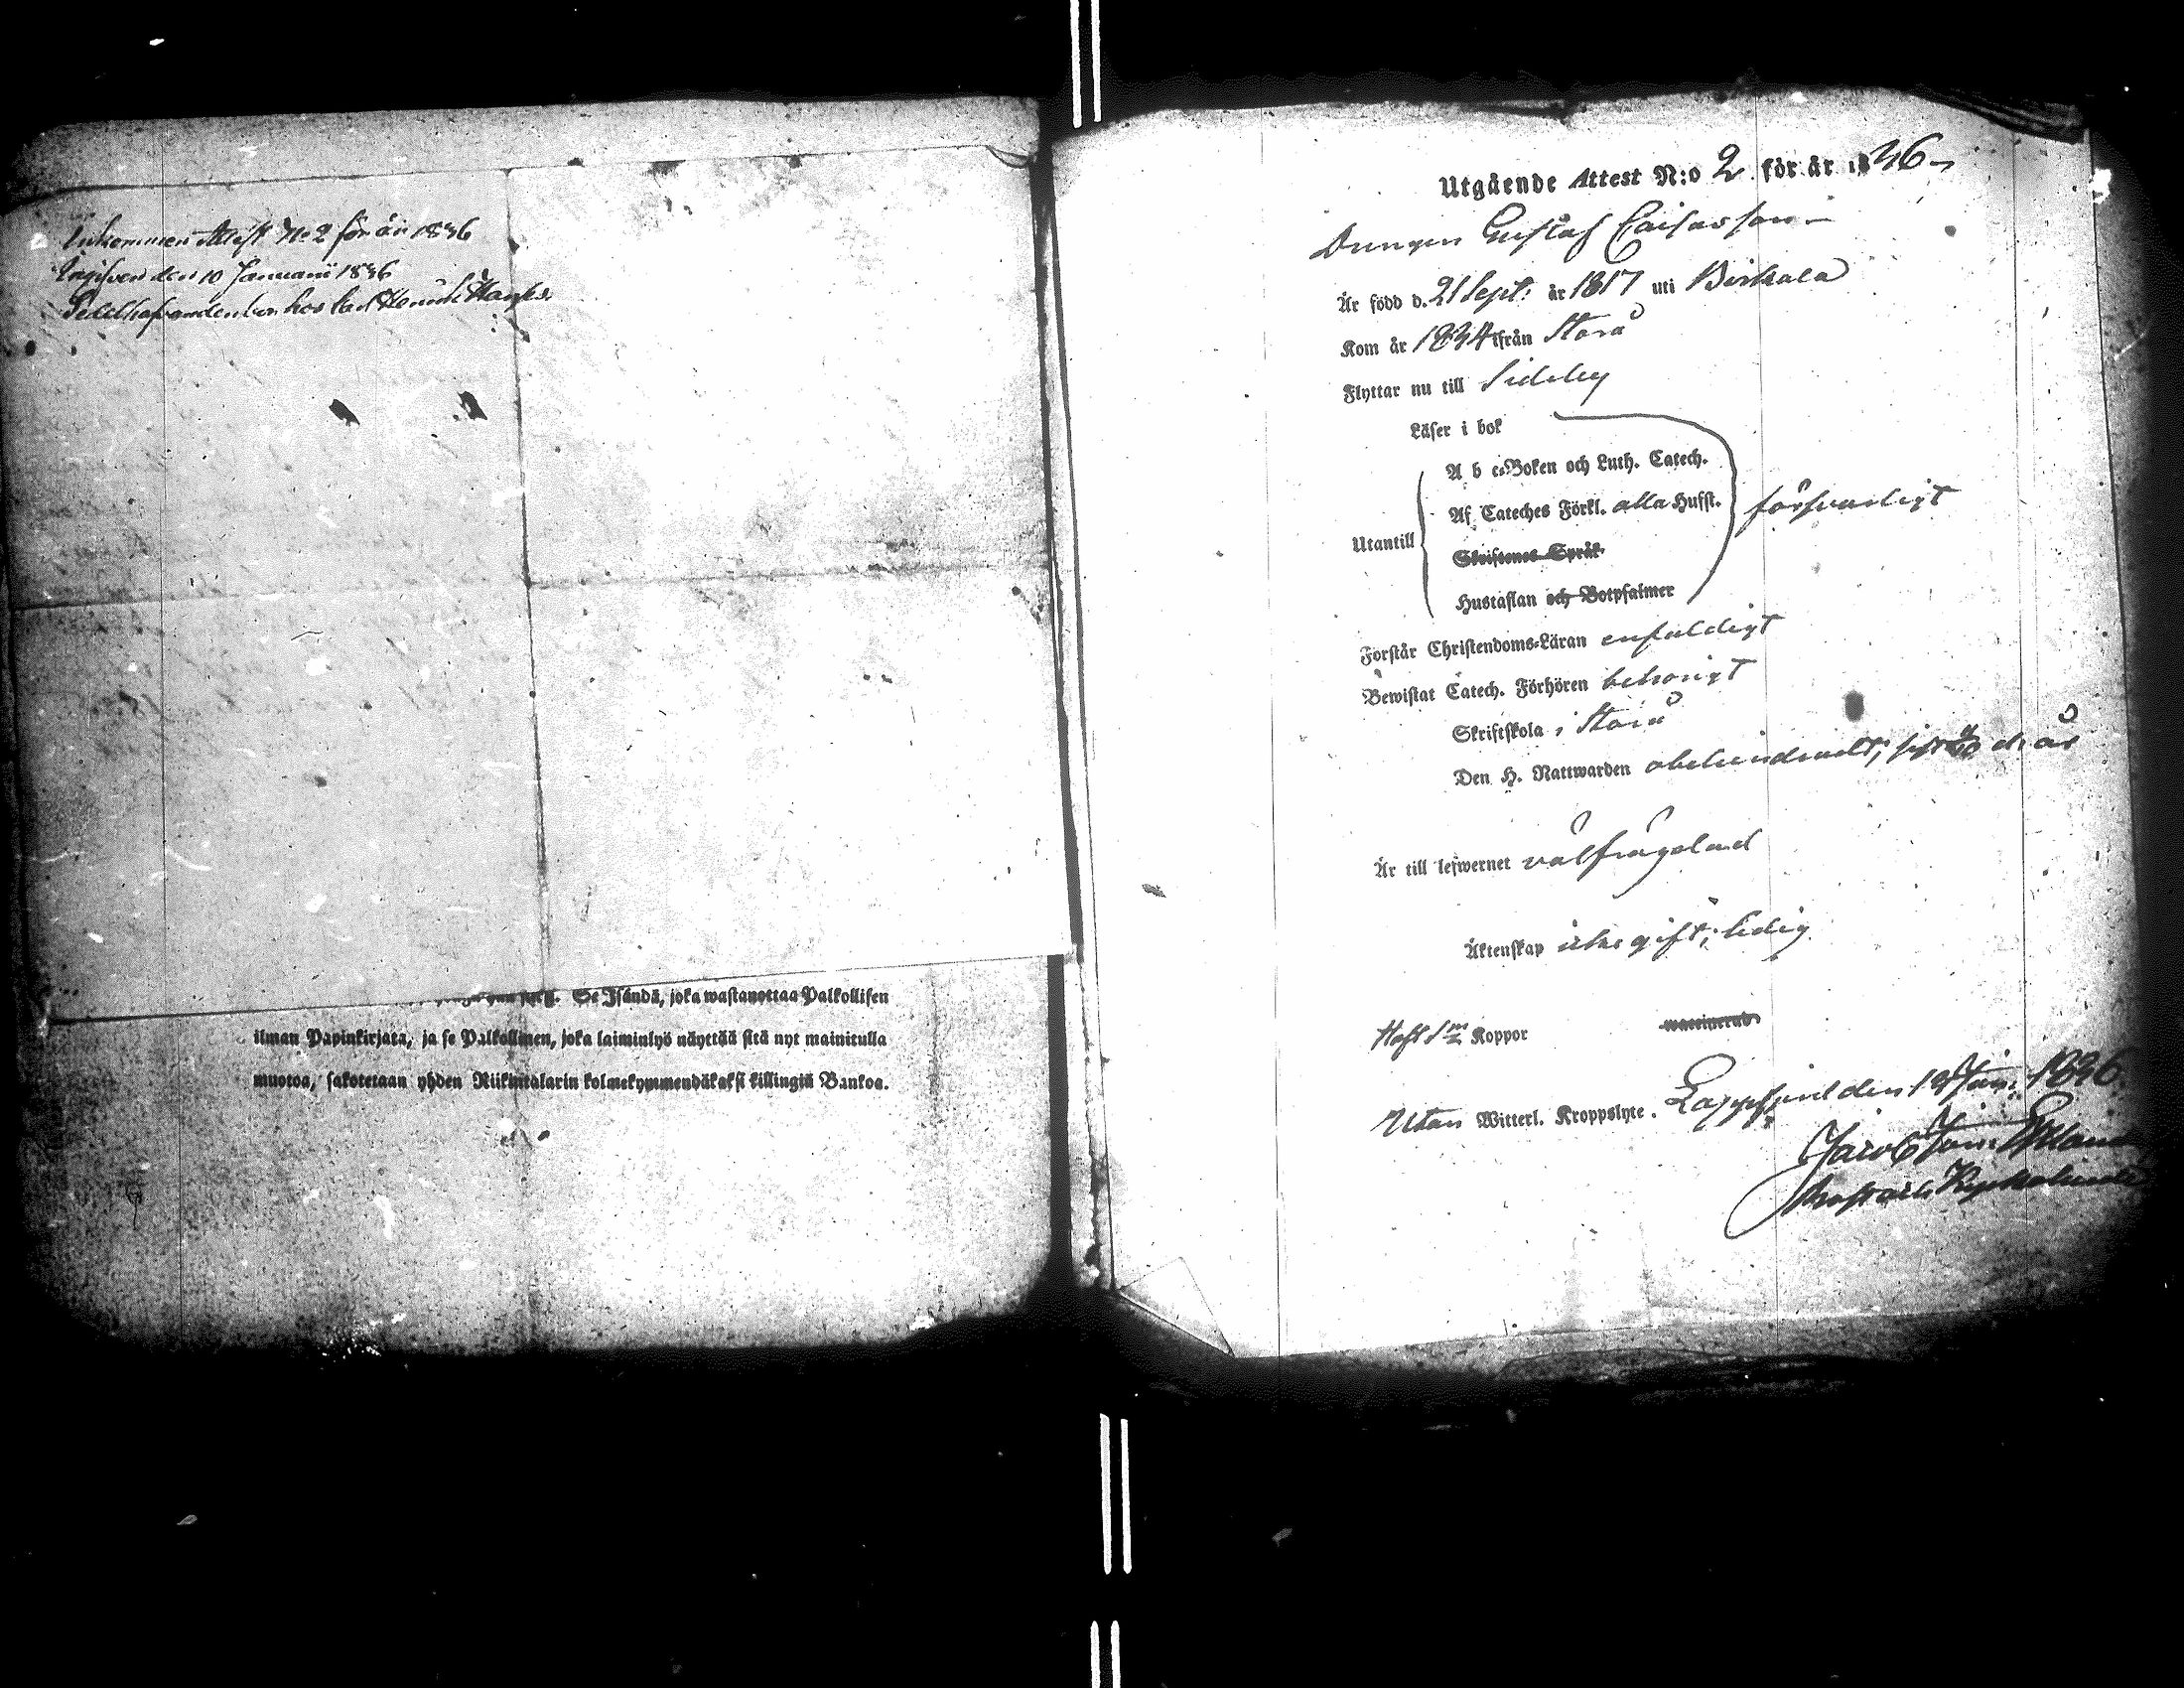 Inkommen Attest No 2 för år 1836
Ingifven den 10 Januarii 1836
hos
Se Isändä, joka wastanottaa Palkollisen
ilman Papinkirjata, ja se Palkollinen, joka laiminlyö näyttää sitä nyt mainitulla
muotoa, sakotetaan yhden Riikintalarin kolmekymmendäkaksi killingiä Bankoa.
Utgående Attest N:o 2 för år 1836
Drängen Gustaf Carlsson
Är född d. 21 Sept: år 1817 uti Birkala
Kom år 1834 ifrån Storå
Flyttar nu till Sideby
Läser i bok
A b c-Boken och Luth. Catech.
Af Cateches Förkl. alla Hufst.
försvarligt
Utantill
Skriftenes Språk
Hustaflan och Botpsalmer
Förstår Christendoms-Läran enfaldigt
Bewistat Catech. Förhören behörigt
Skriftskola i Storå
Den H. Nattwarden obehindradt, d. år
Är till lefwernet välfrägdad
Äktenskap icke gift, ledig
Haft Koppor waccinerad
Utan Witterl. Kroppslyte. Lappfjerd den Jan: 1836
Jacob